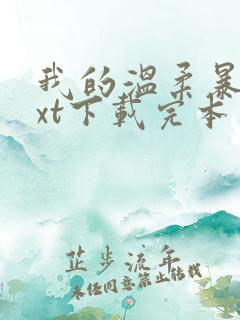 我的温柔暴
xt下载完本
芷步流年
未经同意禁止转载